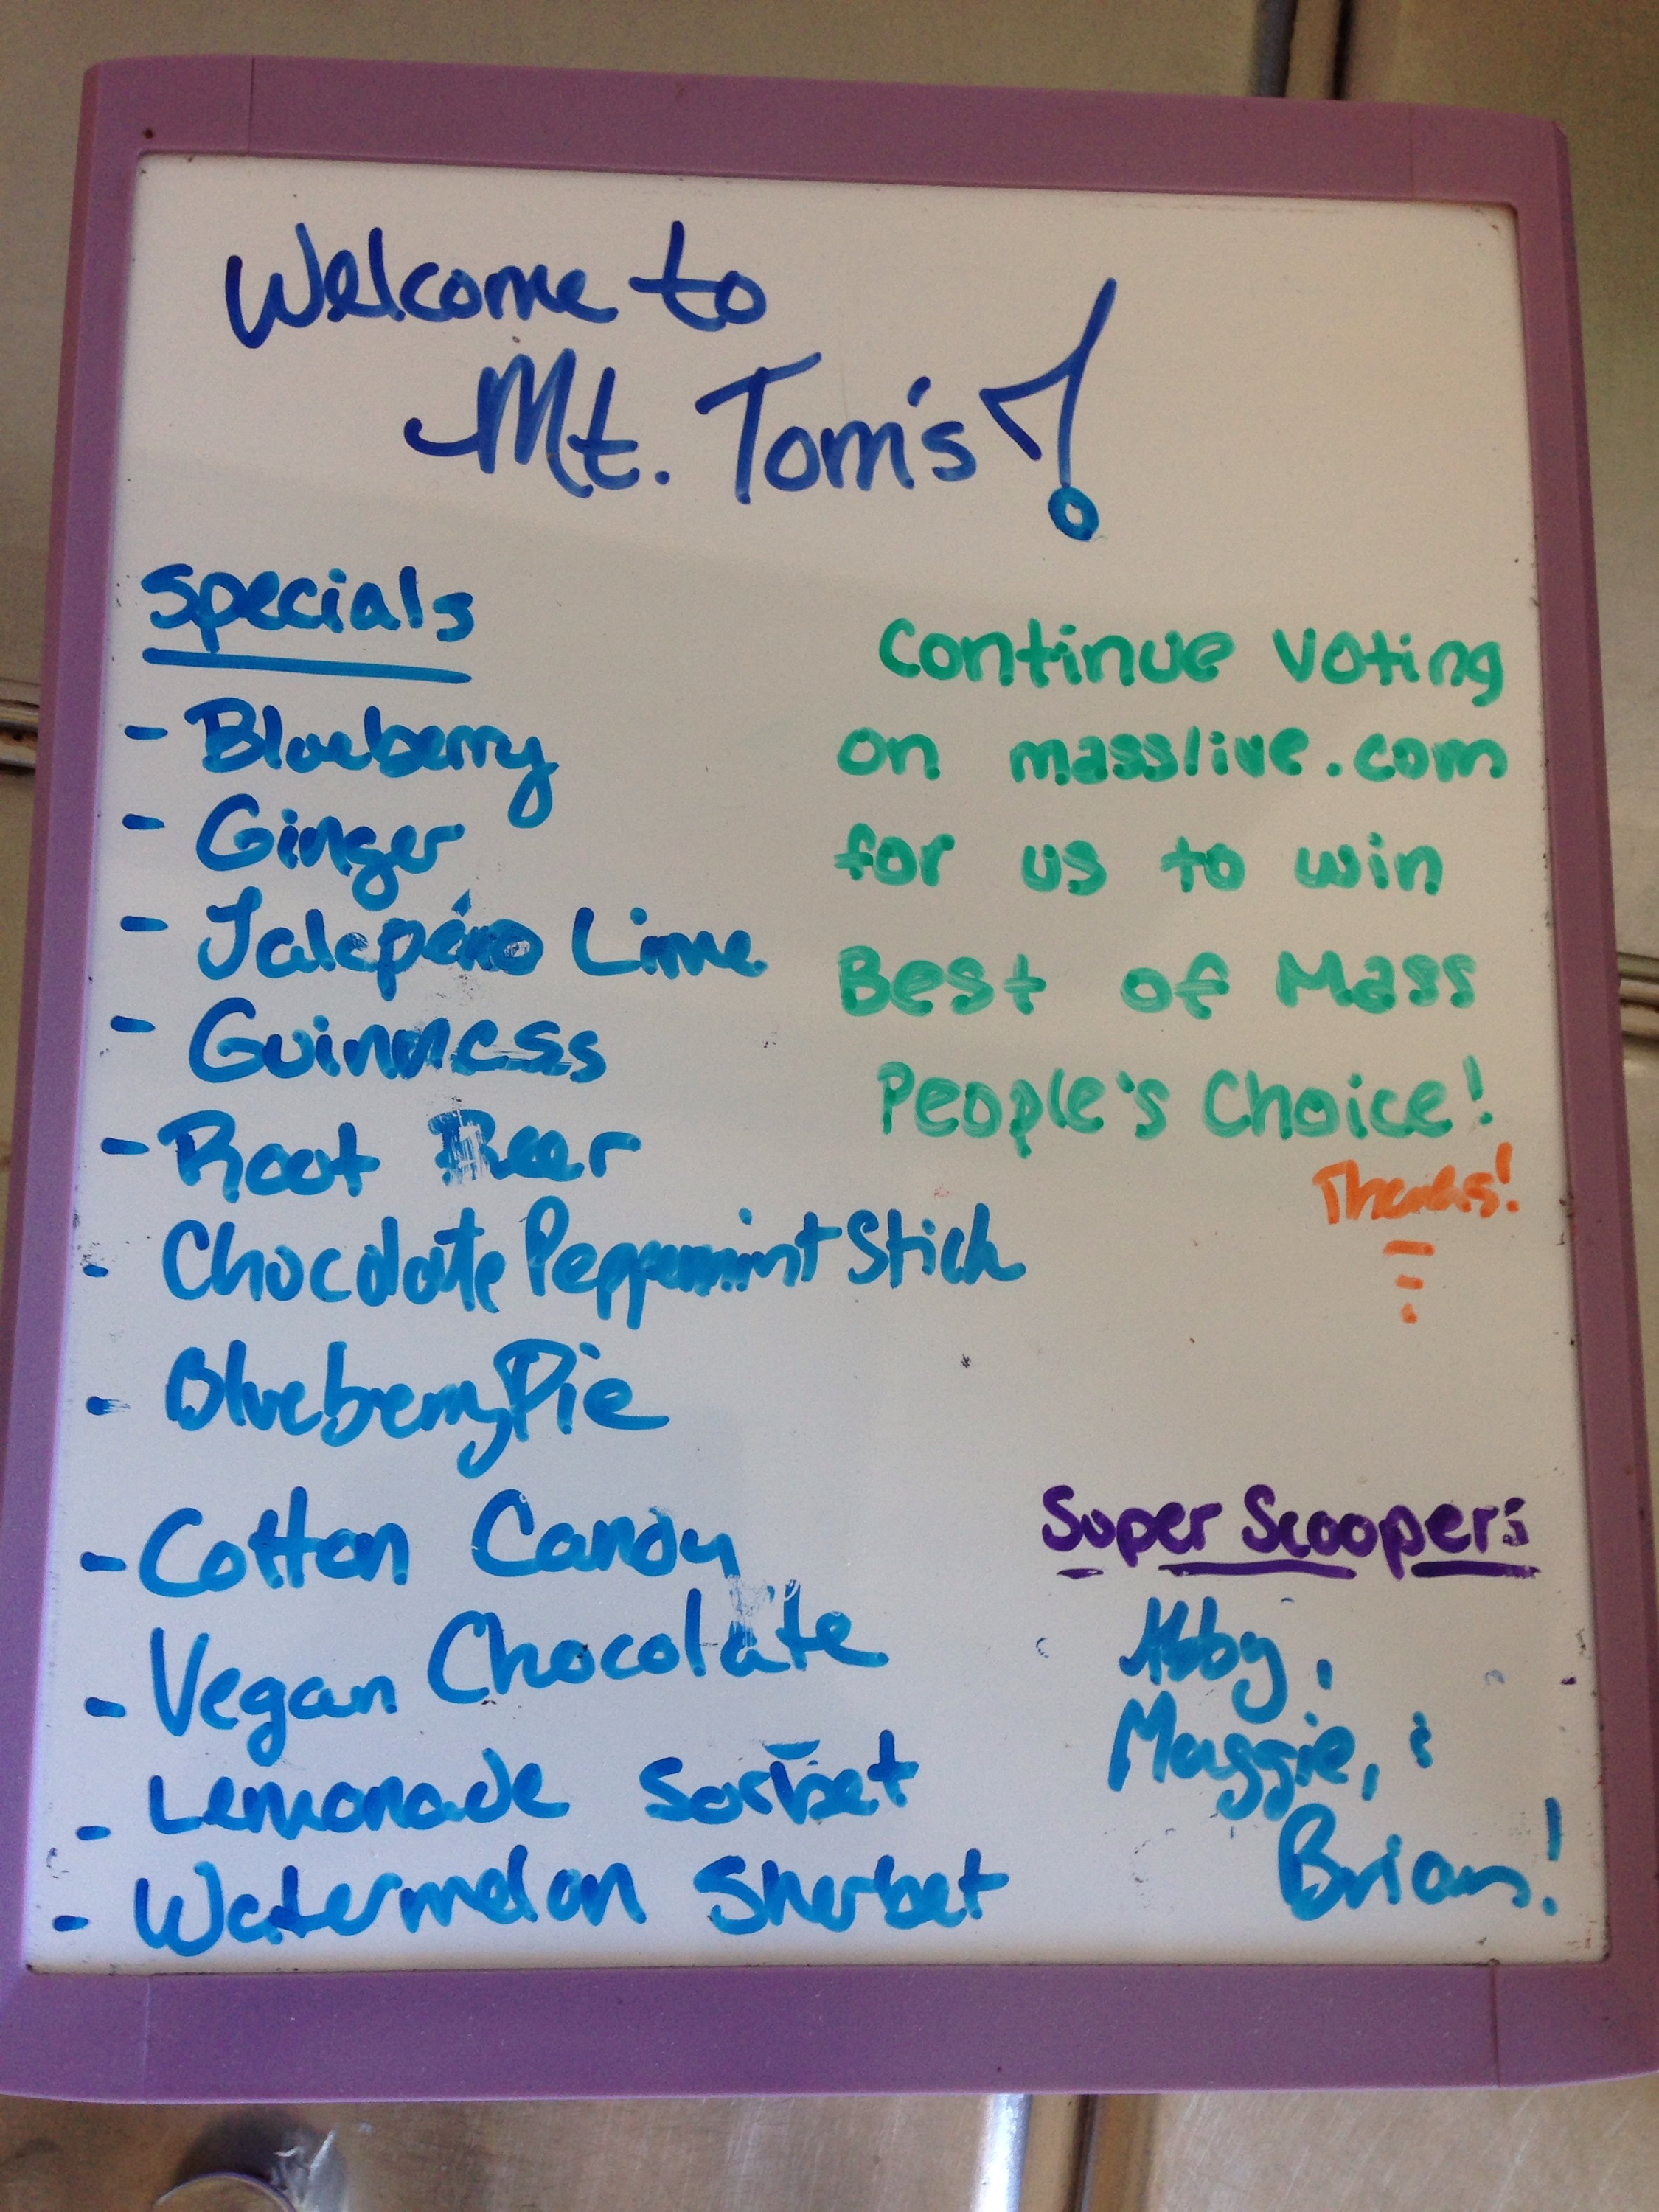 Welcome to
Mt. Tom's!
Specials
- Blueberry
- Ginger
- Jalepéno Lime
- Guinness
- Root Beer
- Chocolate Peppermint Stick
- Blueberry Pie
- Cotton Candy
- Vegan Chocolate
- Lemonade Sorbet
- Watermelon Sherbet
Continue voting
on masslive.com
for us to win
Best of Mass
People's Choice!
Thanks!
Super Scoopers
Abby,
Maggie, &
Brian!